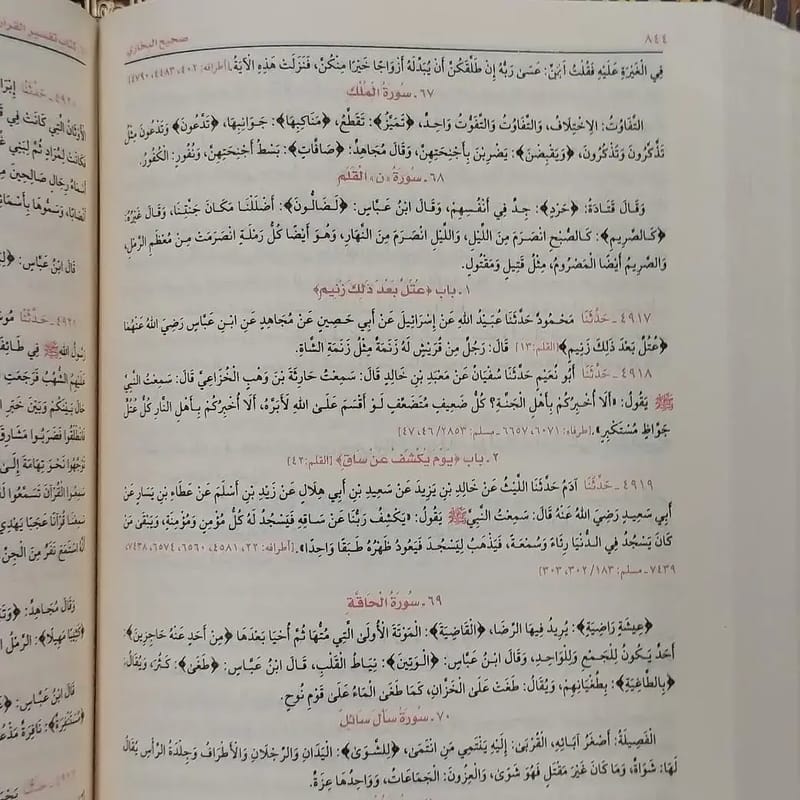 ٨٤٤
صحيح البخاري
فِي الْغَيْرَةِ عَلَيْهِ فَقُلْتُ لَهُنَّ: عَسَى رَبُّهُ إِنْ طَلَّقَكُنَّ أَنْ يُبَدِّلَهُ أَزْوَاجًا خَيْرًا مِنْكُنَّ، فَنَزَلَتْ هَذِهِ الْآيَةُ. [أطرافه: ٤٠٢، ٤٤٨٣، ٤٧٩٠]
٦٧ ـ سُورَةُ الْمُلْكِ
التَّفَاوُتُ: الِاخْتِلَافُ، وَالتَّفَاوُتُ وَالتَّفَوُّتُ وَاحِدٌ، ﴿تَمَيَّزُ﴾: تَقَطَّعُ، ﴿مَنَاكِبِهَا﴾: جَوَانِبِهَا، ﴿تَدَّعُونَ﴾ وَتَدْعُونَ مِثْلُ
تَذَّكَّرُونَ وَتَذْكُرُونَ، ﴿وَيَقْبِضْنَ﴾: يَضْرِبْنَ بِأَجْنِحَتِهِنَّ، وَقَالَ مُجَاهِدٌ: ﴿صَافَّاتٍ﴾: بَسْطُ أَجْنِحَتِهِنَّ، وَنُفُورٍ: الْكُفُورُ.
٦٨ ـ سُورَةُ ﴿ن﴾ الْقَلَمِ
وَقَالَ قَتَادَةُ: ﴿حَرْدٍ﴾: جِدٍّ فِي أَنْفُسِهِمْ، وَقَالَ ابْنُ عَبَّاسٍ: ﴿لَضَالُّونَ﴾: أَضْلَلْنَا مَكَانَ جَنَّتِنَا، وَقَالَ غَيْرُهُ:
﴿كَالصَّرِيمِ﴾: كَالصُّبْحِ انْصَرَمَ مِنَ اللَّيْلِ، وَاللَّيْلِ انْصَرَمَ مِنَ النَّهَارِ، وَهُوَ أَيْضًا كُلُّ رَمْلَةٍ انْصَرَمَتْ مِنْ مُعْظَمِ الرَّمْلِ،
وَالصَّرِيمُ أَيْضًا الْمَصْرُومُ، مِثْلُ قَتِيلٍ وَمَقْتُولٍ.
١ ـ باب ﴿عُتُلٍّ بَعْدَ ذَلِكَ زَنِيمٍ﴾
٤٩١٧ ـ حَدَّثَنَا مَحْمُودٌ حَدَّثَنَا عُبَيْدُ اللهِ عَنْ إِسْرَائِيلَ عَنْ أَبِي حَصِينٍ عَنْ مُجَاهِدٍ عَنِ ابْنِ عَبَّاسٍ رَضِيَ اللهُ عَنْهُمَا
﴿عُتُلٍّ بَعْدَ ذَلِكَ زَنِيمٍ﴾ [القلم: ١٣] قَالَ: رَجُلٌ مِنْ قُرَيْشٍ لَهُ زَنَمَةٌ مِثْلُ زَنَمَةِ الشَّاةِ.
٤٩١٨ ـ حَدَّثَنَا أَبُو نُعَيْمٍ حَدَّثَنَا سُفْيَانُ عَنْ مَعْبَدِ بْنِ خَالِدٍ قَالَ: سَمِعْتُ حَارِثَةَ بْنَ وَهْبٍ الْخُزَاعِيَّ قَالَ: سَمِعْتُ النَّبِيَّ
ﷺ يَقُولُ: «أَلَا أُخْبِرُكُمْ بِأَهْلِ الْجَنَّةِ؟ كُلُّ ضَعِيفٍ مُتَضَعَّفٍ لَوْ أَقْسَمَ عَلَى اللهِ لَأَبَرَّهُ، أَلَا أُخْبِرُكُمْ بِأَهْلِ النَّارِ كُلُّ عُتُلٍّ
جَوَّاظٍ مُسْتَكْبِرٍ». [طرفاه: ٦٠٧١، ٦٦٥٧ ـ مسلم: ٢٨٥٣/ ٤٦، ٤٧]
٢ ـ باب ﴿يَوْمَ يُكْشَفُ عَنْ سَاقٍ﴾ [القلم: ٤٢]
٤٩١٩ ـ حَدَّثَنَا آدَمُ حَدَّثَنَا اللَّيْثُ عَنْ خَالِدِ بْنِ يَزِيدَ عَنْ سَعِيدِ بْنِ أَبِي هِلَالٍ عَنْ زَيْدِ بْنِ أَسْلَمَ عَنْ عَطَاءِ بْنِ يَسَارٍ عَنْ
أَبِي سَعِيدٍ رَضِيَ اللهُ عَنْهُ قَالَ: سَمِعْتُ النَّبِيَّ ﷺ يَقُولُ: «يَكْشِفُ رَبُّنَا عَنْ سَاقِهِ فَيَسْجُدُ لَهُ كُلُّ مُؤْمِنٍ وَمُؤْمِنَةٍ، وَيَبْقَى مَنْ
كَانَ يَسْجُدُ فِي الدُّنْيَا رِئَاءً وَسُمْعَةً، فَيَذْهَبُ لِيَسْجُدَ فَيَعُودُ ظَهْرُهُ طَبَقًا وَاحِدًا». [أطرافه: ٢٢، ٤٥٨١، ٦٥٦٠، ٦٥٧٤، ٧٤٣٨،
٧٤٣٩ ـ مسلم: ١٨٣/ ٣٠٢، ٣٠٣]
٦٩ ـ سُورَةُ الْحَاقَّةِ
﴿عِيشَةٍ رَاضِيَةٍ﴾: يُرِيدُ فِيهَا الرِّضَا، ﴿الْقَاضِيَةَ﴾: الْمَوْتَةَ الْأُولَى الَّتِي مُتُّهَا ثُمَّ أُحْيَا بَعْدَهَا ﴿مِنْ أَحَدٍ عَنْهُ حَاجِزِينَ﴾:
أَحَدٌ يَكُونُ لِلْجَمْعِ وَلِلْوَاحِدِ، وَقَالَ ابْنُ عَبَّاسٍ: ﴿الْوَتِينَ﴾: نِيَاطُ الْقَلْبِ، قَالَ ابْنُ عَبَّاسٍ: ﴿طَغَى﴾: كَثُرَ، وَيُقَالُ:
﴿بِالطَّاغِيَةِ﴾: بِطُغْيَانِهِمْ، وَيُقَالُ: طَغَتْ عَلَى الْخَزَّانِ، كَمَا طَغَى الْمَاءُ عَلَى قَوْمِ نُوحٍ.
٧٠ ـ سُورَةُ سَأَلَ سَائِلٌ
الْفَصِيلَةُ: أَصْغَرُ آبَائِهِ، الْقُرْبَى: إِلَيْهِ يَنْتَمِي مَنِ انْتَمَى، ﴿لِلشَّوَى﴾: الْيَدَانِ وَالرِّجْلَانِ وَالْأَطْرَافُ وَجِلْدَةُ الرَّأْسِ يُقَالُ
لَهَا: شَوَاةٌ، وَمَا كَانَ غَيْرَ مَقْتَلٍ فَهُوَ شَوًى، وَالْعِزُونَ: الْجَمَاعَاتُ، وَوَاحِدُهَا عِزَةٌ.
كتاب تفسير القرآن
٤٩٢٠ ـ حَدَّثَنَا
الْأَوْثَانُ الَّتِي كَانَتْ فِي
فَكَانَتْ لِمُرَادٍ ثُمَّ لِبَنِي
أَسْمَاءُ رِجَالٍ صَالِحِينَ مِنْ
أَنْصَابًا، وَسَمُّوهَا
قَالَ ابْنُ عَبَّاسٍ:
٤٩٢١ ـ حَدَّثَنَا
رَسُولُ اللهِ ﷺ فِي
عَلَيْهِمُ الشُّهُبُ فَرَجَعَتِ
حَالَ بَيْنَكُمْ وَبَيْنَ خَبَرِ
فَانْطَلَقُوا فَضَرَبُوا مَشَارِقَ
تَوَجَّهُوا نَحْوَ تِهَامَةَ إِلَى
سَمِعُوا الْقُرْآنَ تَسَمَّعُوا
سَمِعْنَا قُرْآنًا عَجَبًا يَهْدِي
أَنَّهُ اسْتَمَعَ نَفَرٌ مِنَ الْجِنِّ
وَقَالَ مُجَاهِدٌ:
﴿كَثِيبًا مَهِيلًا﴾: الرَّمْلُ
قَالَ ابْنُ عَبَّاسٍ:
﴿مُسْتَنْفِرَةٌ﴾: نَافِرَةٌ